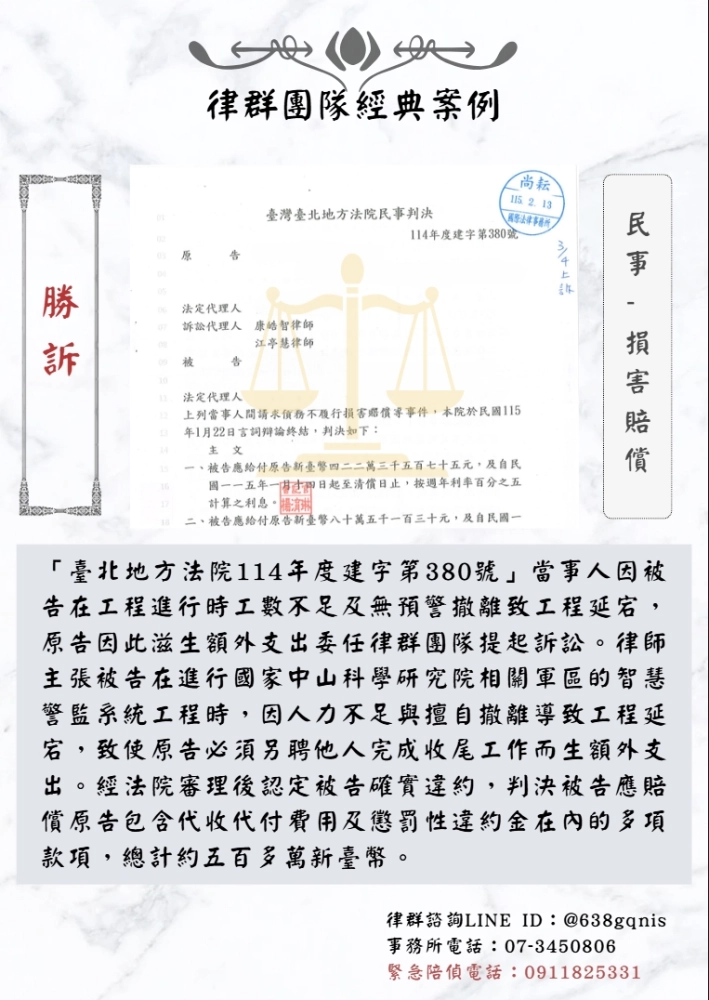 律群團隊經典案例
勝訴
民事-損害賠償
尚耘
115. 2. 13
國際法律事務所
3/4上訴
臺灣臺北地方法院民事判決
114年度建字第380號
原 告
法定代理人
訴訟代理人 康皓智律師
江亭慧律師
被 告
法定代理人
上列當事人間請求債務不履行損害賠償等事件,本院於民國115
年1月22日言詞辯論終結,判決如下:
主 文
一、被告應給付原告新臺幣四二二萬三千五百七十五元,及自民
國一一五年一月十四日起至清償日止,按週年利率百分之五
計算之利息。
二、被告應給付原告新臺幣八十萬五千一百三十元,及自民國一
「臺北地方法院114年度建字第380號」當事人因被
告在工程進行時工數不足及無預警撤離致工程延宕,
原告因此滋生額外支出委任律群團隊提起訴訟。律師
主張被告在進行國家中山科學研究院相關軍區的智慧
警監系統工程時,因人力不足與擅自撤離導致工程延
宕,致使原告必須另聘他人完成收尾工作而生額外支
出。經法院審理後認定被告確實違約,判決被告應賠
償原告包含代收代付費用及懲罰性違約金在內的多項
款項,總計約五百多萬新臺幣。
律群諮詢LINE ID:@638gqnis
事務所電話:07-3450806
緊急陪偵電話:0911825331